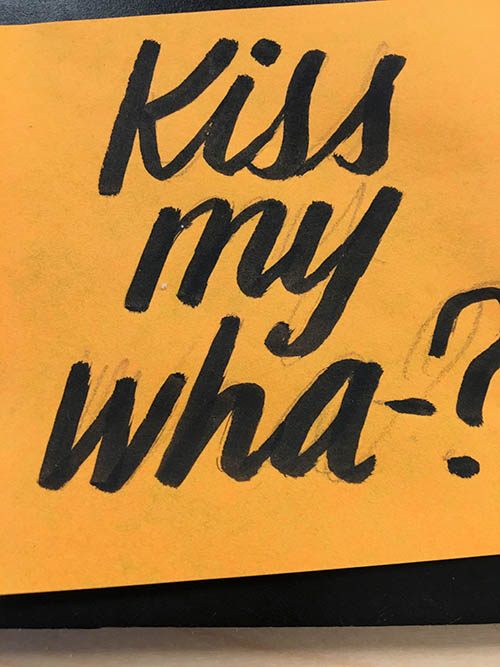 Kiss
my
wha-?